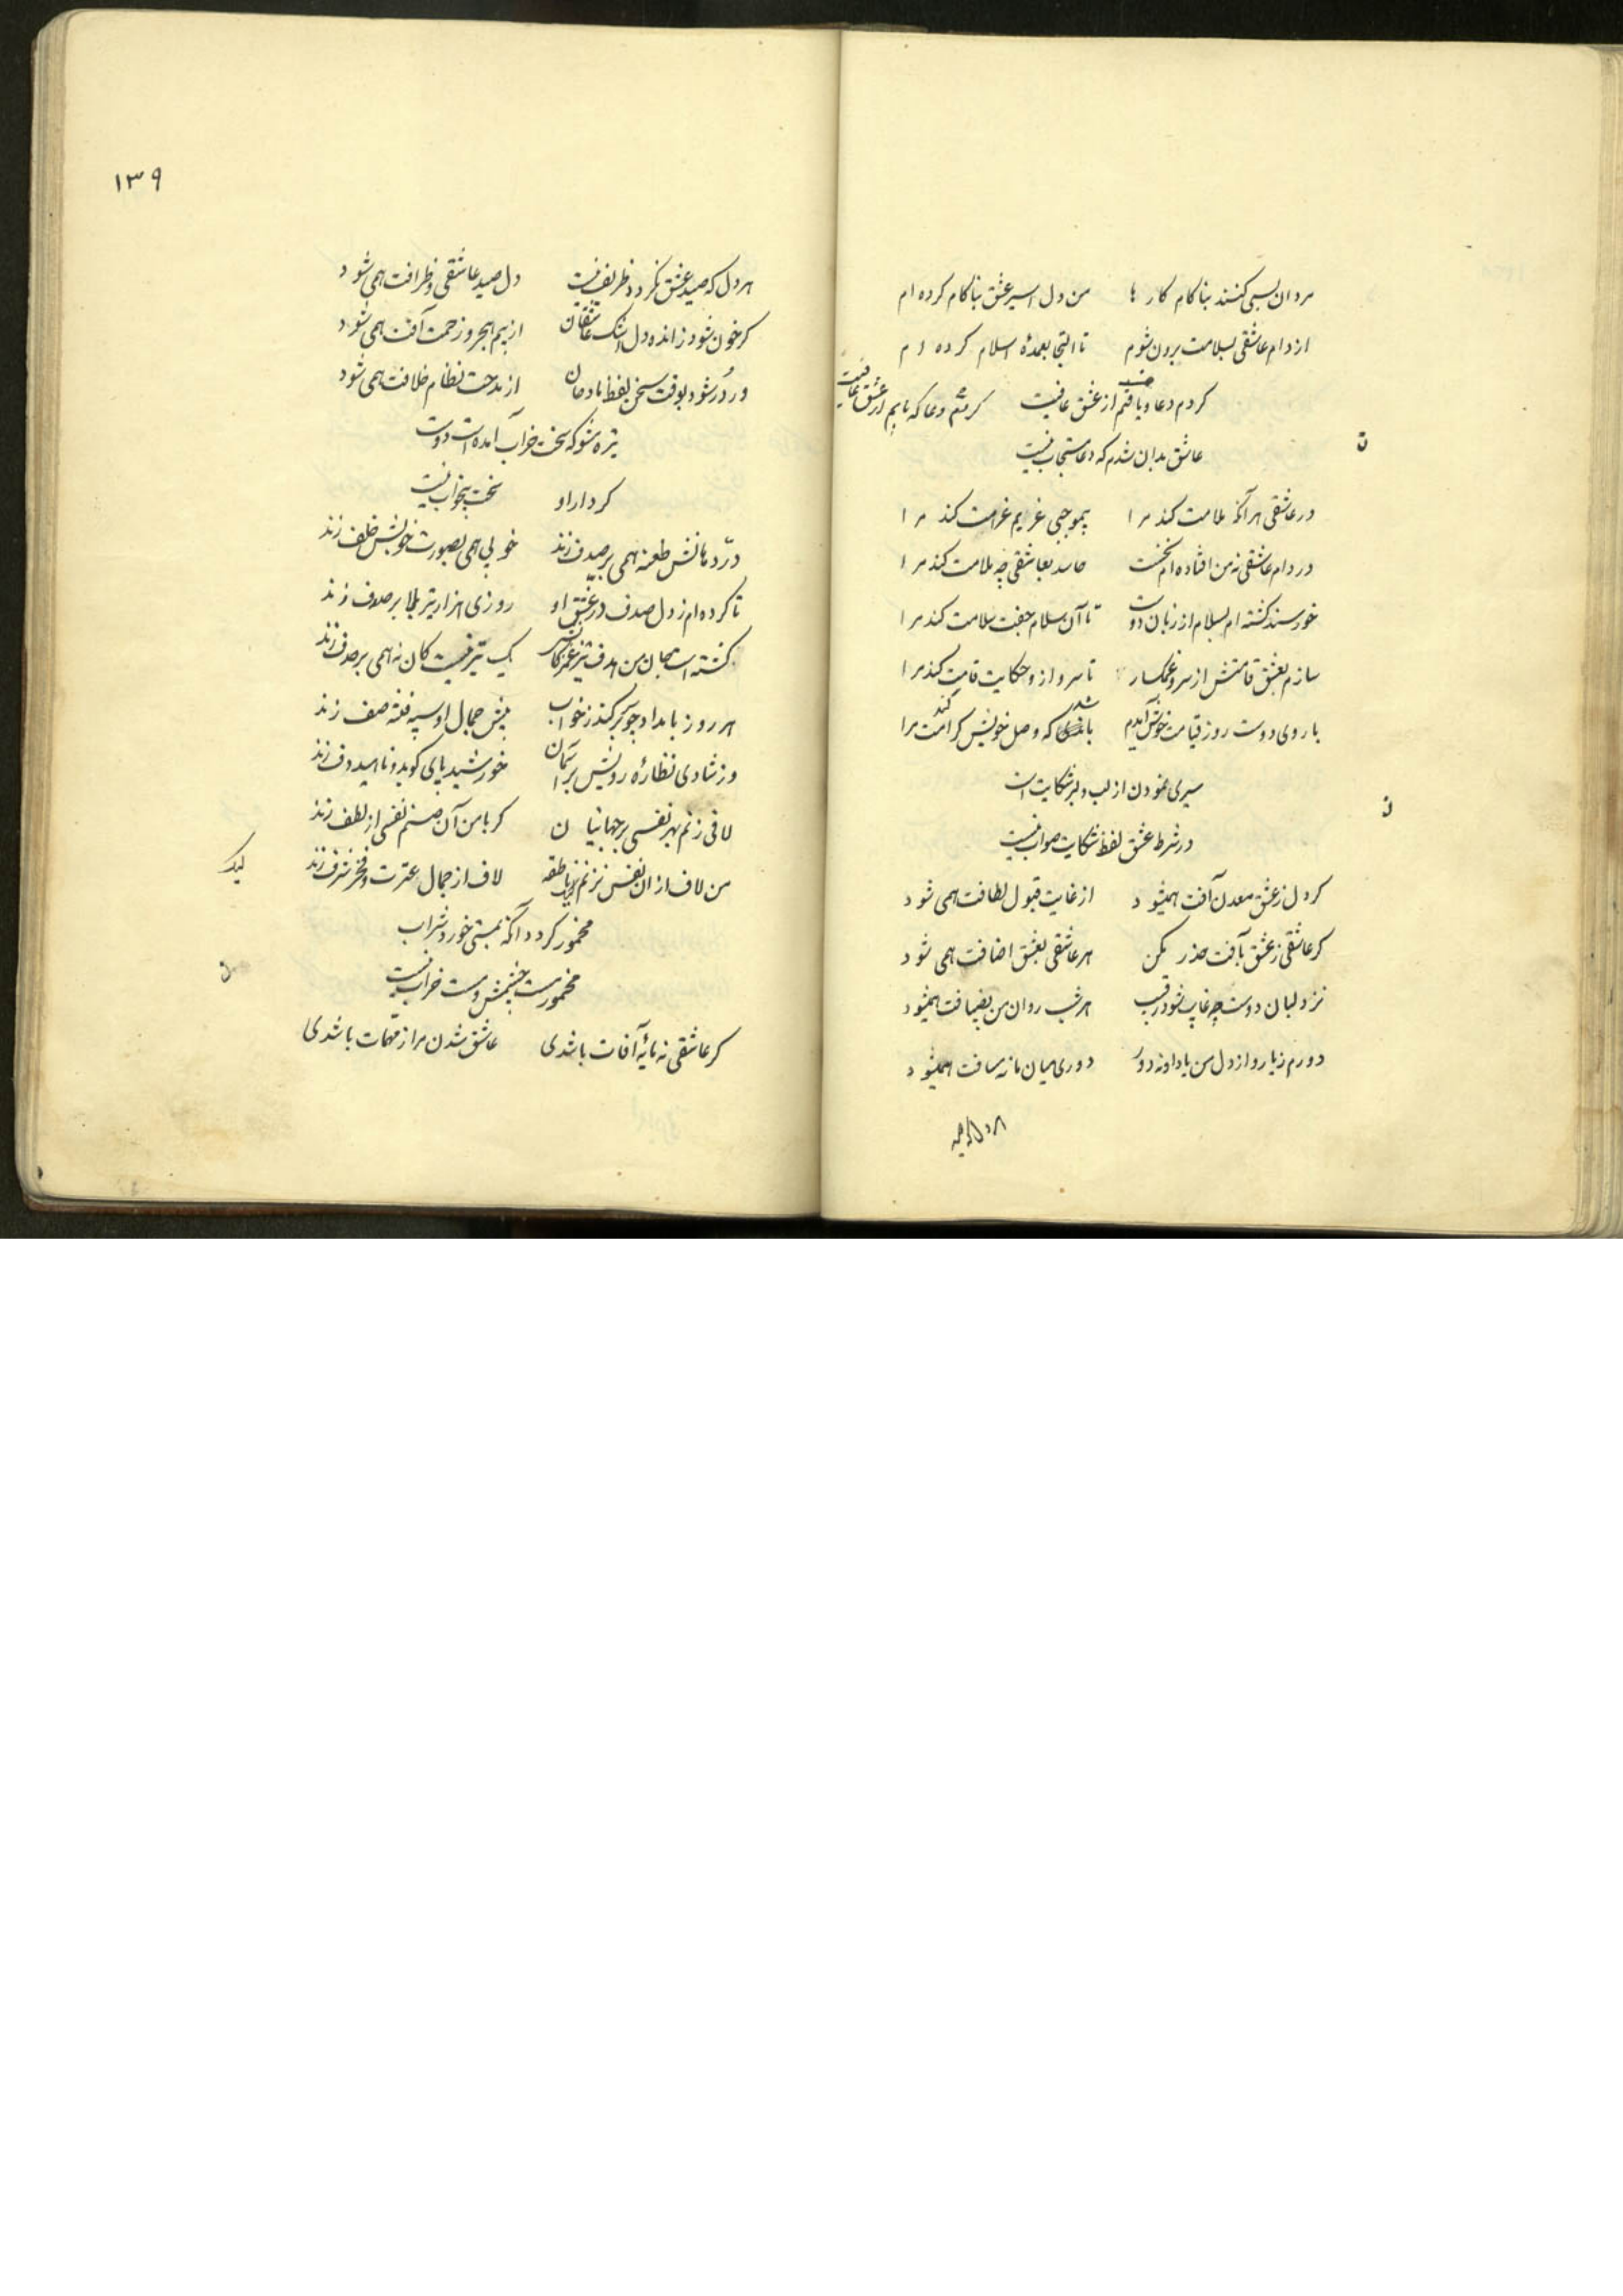 مردان بسی کنند بناکام کارها من دل اسیر عشق بناکام کرده ام
از دام عاشقی بسلامت برون شوم تا التجا بعمدهٔ اسلام کرده ام
کردم دعا و یافتم از عشق عافیت
عاشق بدان شدم که دعا مستجاب نیست
ن
در عاشقی هر آنکه ملامت کند مرا بموجبی غریم غرامت کند مرا
در دام عاشقی نه من افتاده ام نخست حاسد بعاشقی چه ملامت کند مرا
خورسند کشته ام بسلام از زبان دوست تا آن سلام جفت سلامت کند مرا
سازم بعشق قامتش از سرو غمکسار تا سرو ازو حکایت قامت کند مرا
با روی دوست روز قیامت خوش آیدم باشد که وصل خویش کرامت کند مرا
سیری نمودن از لب دلبر شکایت است
ن
در شرط عشق لفظ شکایت صواب نیست
کر دل ز عشق معدن آفت همیشود از غایت قبول لطافت همی شود
کر عاشقی ز عشق بآفت حذر مکن هر عاشقی بعشق اضافت همی شود
نزد لبان دوست چو غایب شود رقیب هر شب روان من بضیافت همیشود
دورم ز یار و از دل من یاد او نه دور دوری میان ما نه مسافت همیشود
۱۳۹
هر دل که صید عشق نکردد ظریف نیست دل صید عاشقی و ظرافت همی شود
کر خون شود ز انده دل اشک عاشقان از بیم هجر و زحمت آفت همی شود
ور دُر شود بوقت سخن لفظ مادحان از مدحت نظام خلافت همی شود
تیره مشو که بخت خراب آمده است دوست
کر دار او بخت بخواب نیست
درّ دهانش طعنه همی بر صدف زند خوبی همی بصورت خوبش خلف زند
تا کرده ام ز دل صدف در عشق او روزی هزار تیر بلا بر صدف زند
کشته است جان من هدف تیر غمزه‌اش یک تیر نیست کان نه همی بر هدف زند
هر روز بامداد چو سر برکند ز خواب پیش جمال او سپه فتنه صف زند
وز شادی نظارهٔ رویش بر آسمان خورشید پای کوبد و ناهید دف زند
لافی زنم بهر نفسی بر جهانیان کر با من آن صنم نفسی از لطف زند
من لاف از ان نفس نزنم لاف از جمال عترت و فخر شرف زند
مخمور کردد آنکه بمستی خورد شراب
ن
مخمور نیست چشمش و مست خراب نیست
کر عاشقی نه مایهٔ آفات باشدی عاشق شدن مرا ز مهمات باشدی